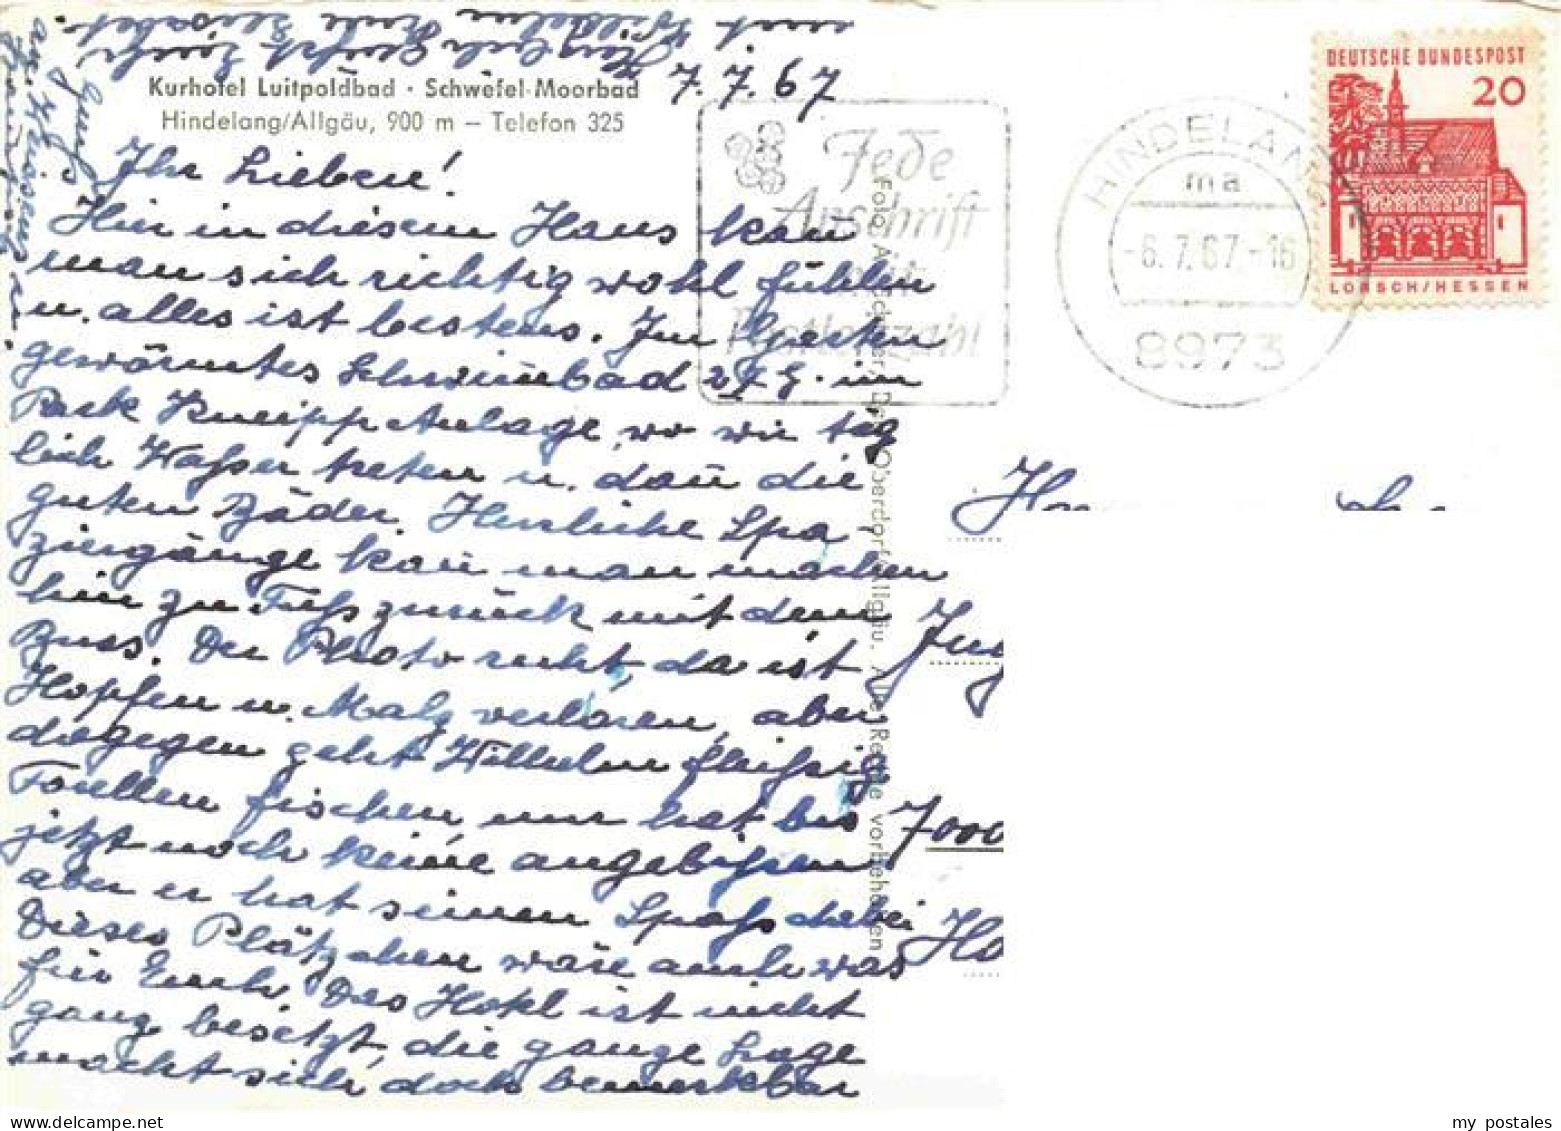 Kurhotel Luitpoldbad · Schwefel-Moorbad
Hindelang/Allgäu, 900 m – Telefon 325
7.7.67
Ihr Lieben!
Hier in diesem Haus kan̄
man sich richtig wohl fühlen
u. alles ist bestens. Im Garten
gewärmtes Schwim̄bad 27 G. im
Park Kneipp Anlage, wo wir täg
lich Wasser treten u. dan̄ die
guten Bäder. Herrliche Spa
ziergänge kan̄ man machen
hin zu Fuß zurück mit dem
Buss. Der Photo recht, da ist
Hopfen u. Malz verloren, aber
dagegen geht Wilhelm fleißig
Forellen fischen nur hat bis
jetzt noch keine angebissen
aber er hat seinen Spaß dabei
Dieses Plätzchen wäre auch was
für Euch. Das Hotel ist nicht
ganz besetzt, die ganze Lage
macht sich doch bemerkbar
Jede
Anschrift
mit
Postleitzahl
HINDELANG
ma
-6.7.67-16
8973
DEUTSCHE BUNDESPOST
20
LORSCH/HESSEN
7000
my postales